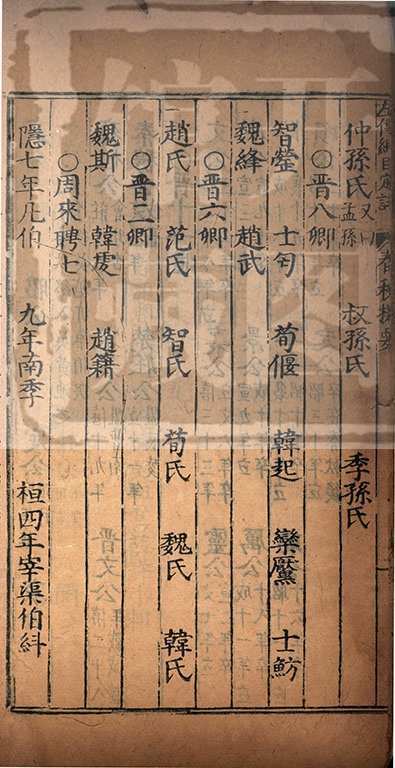 仲孫氏 又曰孟孫 叔孫氏 季孫氏
○晉八卿
智罃 士匄 荀偃 韓起 欒黶 士魴
魏絳 趙武
○晉六卿
趙氏 范氏 智氏 荀氏 魏氏 韓氏
○晉三卿
魏斯 韓虔 趙籍
○周來聘七
隱七年凡伯 九年南季 桓四年宰渠伯糾